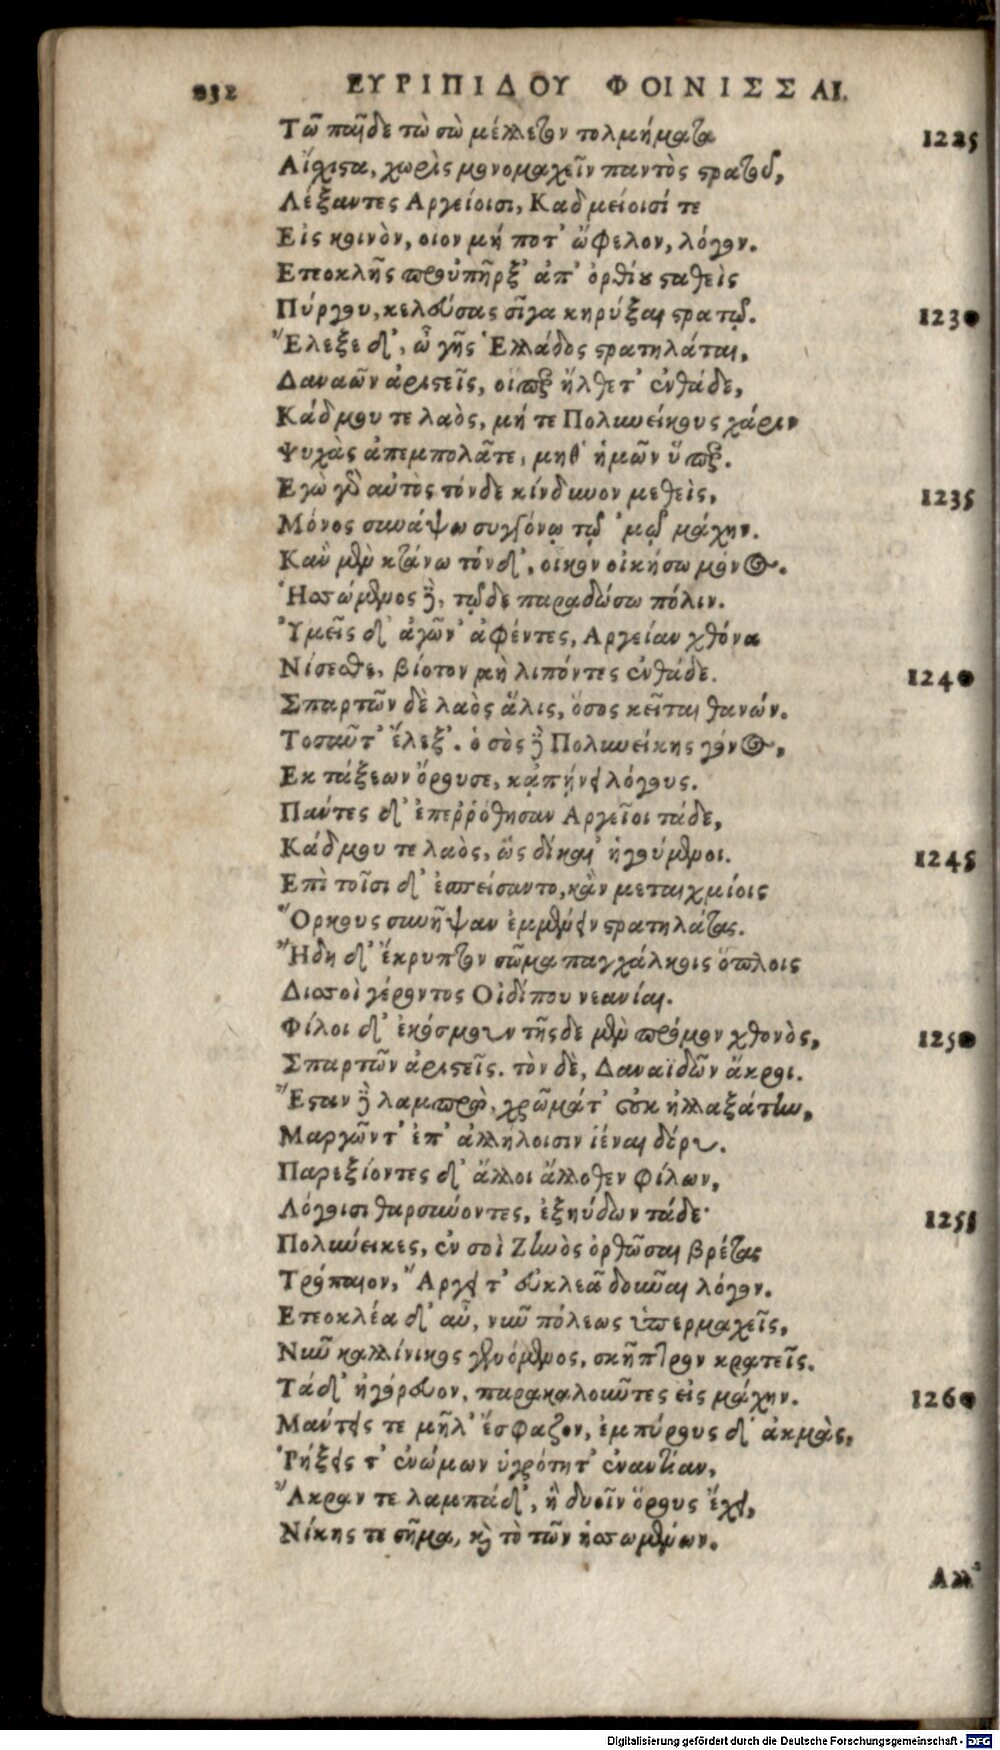 232 ΕΥΡΙΠΙΔΟΥ ΦΟΙΝΙΣΣΑΙ.
Τῶ παῖδε τὼ σὼ μέλλετον τολμήματα 1225
Αἴχιστα, χωρὶς μονομαχεῖν παντὸς στρατοῦ,
Λέξαντες Αργείοισι, Καδμείοισί τε
Εἰς κοινὸν, οἷον μή ποτ' ὤφελον, λόγον.
Ετεοκλῆς προϋπῆρξ' ἀπ' ὀρθίου σταθεὶς
Πύργου, κελεύσας σῖγα κηρύξαι στρατῷ. 1230
Ἔλεξε δ', ὦ γῆς Ἑλλάδος στρατηλάται,
Δαναῶν ἀριστεῖς, οἵπερ ἤλθετ' ἐνθάδε,
Κάδμου τε λαὸς, μή τε Πολυνείκους χάριν
Ψυχὰς ἀπεμπολᾶτε, μηθ' ἡμῶν ὕπερ.
Εγὼ γὰρ αὐτὸς τόνδε κίνδυνον μεθεὶς, 1235
Μόνος συνάψω συγγόνῳ τῷ 'μῷ μάχην.
Κἂν μὲν κτάνω τόνδ', οἶκον οἰκήσω μόνος.
Ἡσσώμενος δὲ, τῷδε παραδώσω πόλιν.
Ὑμεῖς δ' ἀγῶν' ἀφέντες, Αργείαν χθόνα
Νίσεσθε, βίοτον μὴ λιπόντες ἐνθάδε. 1240
Σπαρτῶν δὲ λαὸς ἅλις, ὅσος κεῖται θανών.
Τοσαῦτ' ἔλεξ'. ὁ σὸς δὲ Πολυνείκης γόνος,
Εκ τάξεων ὤρουσε, κἀπῄνει λόγους.
Πάντες δ' ἐπεῤῥόθησαν Αργεῖοι τάδε,
Κάδμου τε λαὸς, ὡς δίκαι' ἡγούμενοι. 1245
Επὶ τοῖσι δ' ἐσπείσαντο, κἀν μεταιχμίοις
Ὅρκους συνῆψαν ἐμμενεῖν στρατηλάτας.
Ἤδη δ' ἔκρυπτον σῶμα παγχάλκοις ὅπλοις
Δισσοὶ γέροντος Οἰδίπου νεανίαι.
Φίλοι δ' ἐκόσμουν τῆσδε μὲν πρόμον χθονὸς, 1250
Σπαρτῶν ἀριστεῖς. τὸν δὲ, Δαναϊδῶν ἄκροι.
Ἔσταν δὲ λαμπρὼ, χρῶμάτ' οὐκ ἠλλαξάτην,
Μαργῶντ' ἐπ' ἀλλήλοισιν ἱέναι δόρυ.
Παρεξίοντες δ' ἄλλοι ἄλλοθεν φίλων,
Λόγοισι θαρσύνοντες, ἐξηύδων τάδε· 1255
Πολύνεικες, ἐν σοὶ Ζηνὸς ὀρθῶσαι βρέτας
Τρόπαιον, Ἄργει τ' εὐκλεᾶ δοῦναι λόγον.
Ετεοκλέα δ' αὖ, νῦν πόλεως ὑπερμαχεῖς,
Νῦν καλλίνικος γενόμενος, σκήπτρων κρατεῖς.
Τάδ' ἠγόρευον, παρακαλοῦντες εἰς μάχην. 1260
Μάντεις τε μῆλ' ἔσφαζον, ἐμπύρους δ' ἀκμὰς,
Ῥήξεις τ' ἐνώμων ὑγρότητ' ἐναντίαν,
Ἄκραν τε λαμπάδ', ἣ δυοῖν ὅρους ἔχει,
Νίκης τε σῆμα, καὶ τὸ τῶν ἡσσωμένων.
Αλλ'
Digitalisierung gefördert durch die Deutsche Forschungsgemeinschaft - DFG